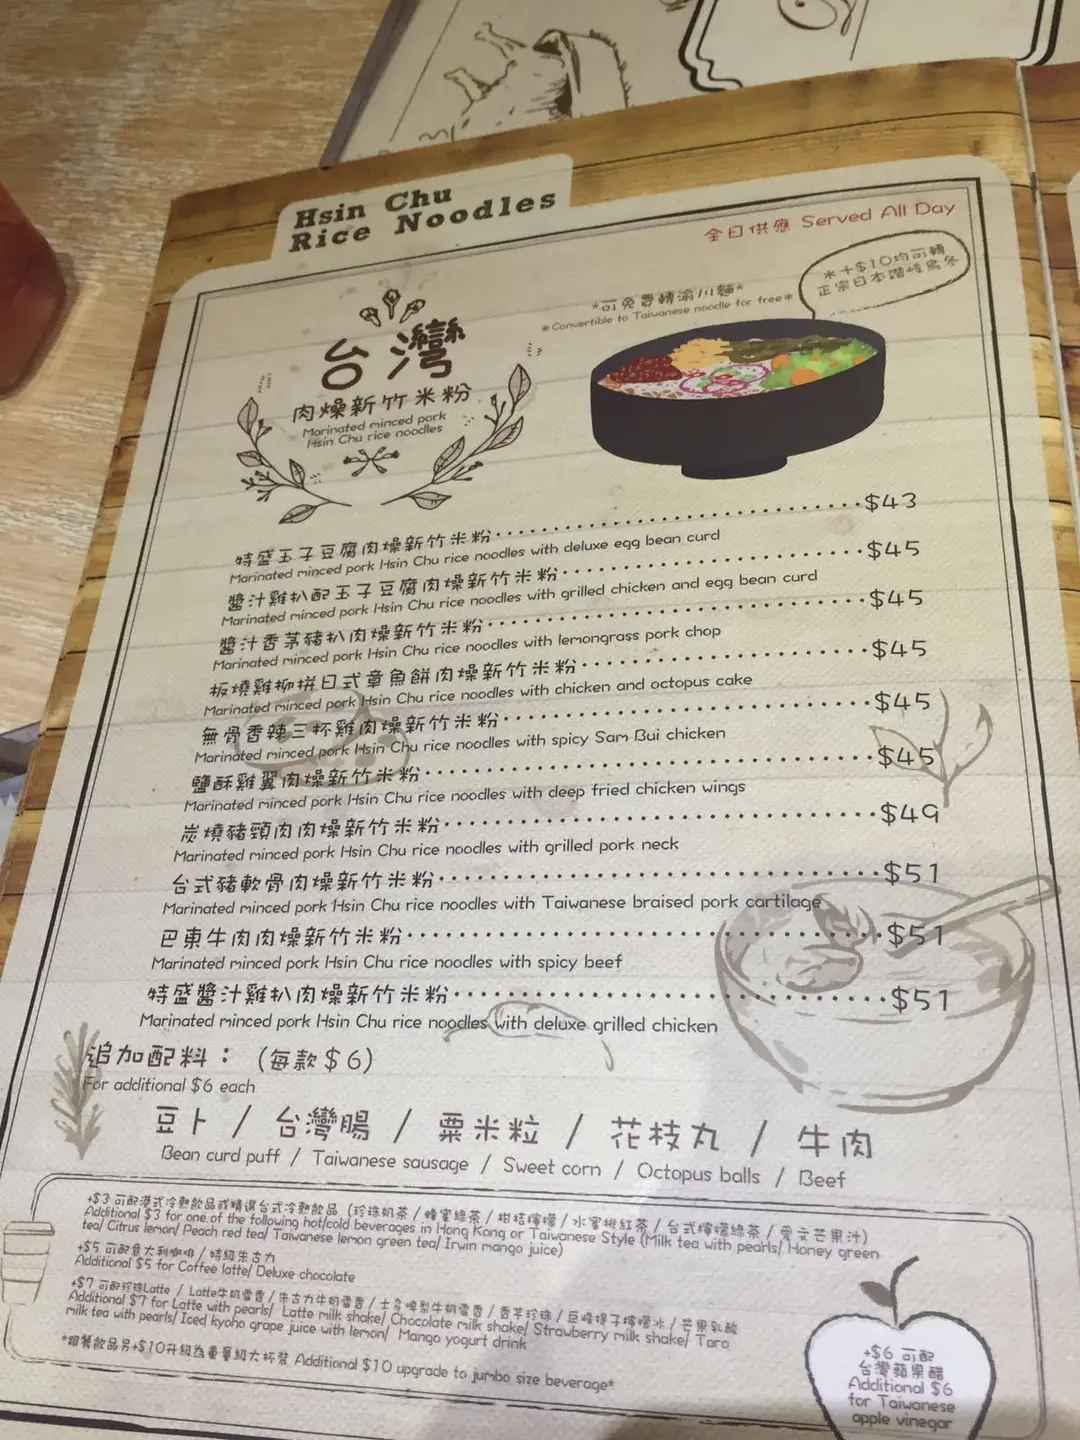 Hsin Chu
Rice Noodles
全日供應 Served All Day
*+$10均可轉
正宗日本讚岐烏冬
*可免費轉渝川麵*
*Convertible to Taiwanese noodle for free*
台灣
肉燥新竹米粉
Marinated minced pork
Hsin Chu rice noodles
特盛玉子豆腐肉燥新竹米粉 $43
Marinated minced pork Hsin Chu rice noodles with deluxe egg bean curd
醬汁雞扒配玉子豆腐肉燥新竹米粉 $45
Marinated minced pork Hsin Chu rice noodles with grilled chicken and egg bean curd
醬汁香茅豬扒肉燥新竹米粉 $45
Marinated minced pork Hsin Chu rice noodles with lemongrass pork chop
板燒雞柳拼日式章魚餅肉燥新竹米粉 $45
Marinated minced pork Hsin Chu rice noodles with chicken and octopus cake
無骨香辣三杯雞肉燥新竹米粉 $45
Marinated minced pork Hsin Chu rice noodles with spicy Sam Bui chicken
鹽酥雞翼肉燥新竹米粉 $45
Marinated minced pork Hsin Chu rice noodles with deep fried chicken wings
炭燒豬頸肉肉燥新竹米粉 $49
Marinated minced pork Hsin Chu rice noodles with grilled pork neck
台式豬軟骨肉燥新竹米粉 $51
Marinated minced pork Hsin Chu rice noodles with Taiwanese braised pork cartilage
巴東牛肉肉燥新竹米粉 $51
Marinated minced pork Hsin Chu rice noodles with spicy beef
特盛醬汁雞扒肉燥新竹米粉 $51
Marinated minced pork Hsin Chu rice noodles with deluxe grilled chicken
追加配料：(每款$6)
For additional $6 each
豆卜 / 台灣腸 / 粟米粒 / 花枝丸 / 牛肉
Bean curd puff / Taiwanese sausage / Sweet corn / Octopus balls / Beef
+$3 可配港式冷熱飲品或精選台式冷熱飲品 (珍珠奶茶 / 蜂蜜綠茶 / 柑桔檸檬 / 水蜜桃紅茶 / 台式檸檬綠茶 / 愛文芒果汁)
Additional $3 for one of the following hot/cold beverages in Hong Kong or Taiwanese Style (Milk tea with pearls/ Honey green
tea/ Citrus lemon/ Peach red tea/ Taiwanese lemon green tea/ Irwin mango juice)
+$5 可配意大利咖啡 / 特級朱古力
Additional $5 for Coffee latte/ Deluxe chocolate
+$7 可配珍珠Latte / Latte牛奶雪香 / 朱古力牛奶雪香 / 士多啤梨牛奶雪香 / 香芋珍珠 / 巨峰提子檸檬冰 / 芒果乳酸
Additional $7 for Latte with pearls/ Latte milk shake/ Chocolate milk shake/ Strawberry milk shake/ Taro
milk tea with pearls/ Iced kyoho grape juice with lemon/ Mango yogurt drink
*跟餐飲品另+$10升級為重量級大杯裝 Additional $10 upgrade to jumbo size beverage*
+$6 可配
台灣蘋果醋
Additional $6
for Taiwanese
apple vinegar